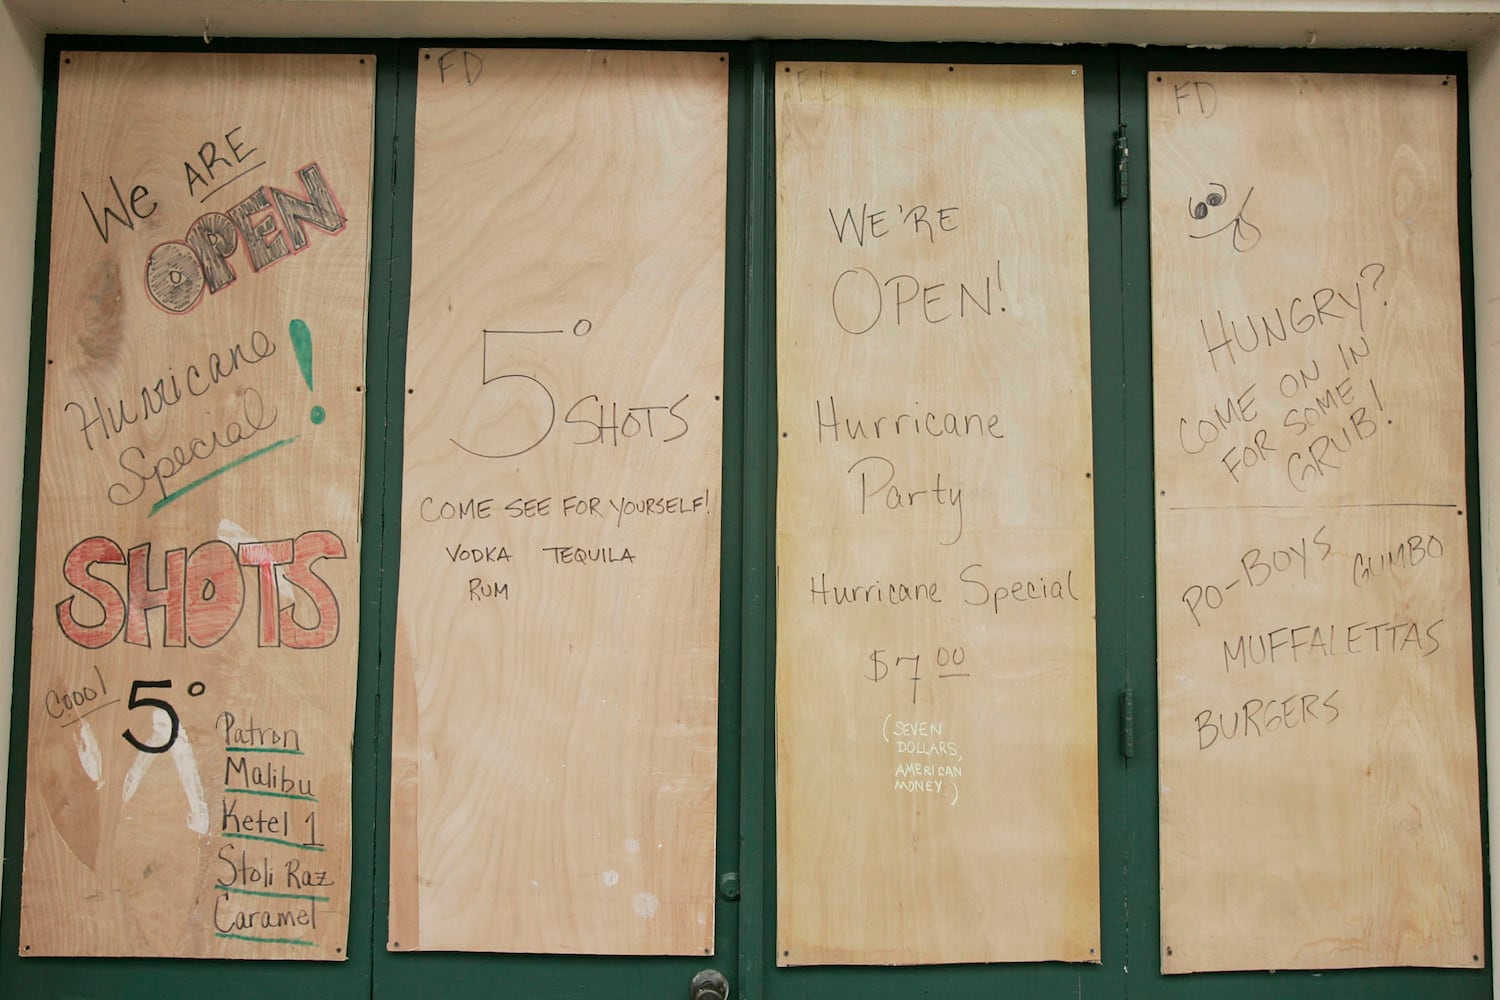 We ARE
OPEN
Hurricane
Special!
SHOTS
Cool
5°
Patron
Malibu
Ketel 1
Stoli Raz
Caramel
FD
5° SHOTS
COME SEE FOR YOURSELF!
VODKA TEQUILA
RUM
FD
WE'RE
OPEN!
Hurricane
Party
Hurricane Special
$7.00
(SEVEN
DOLLARS,
AMERICAN
MONEY.)
FD
HUNGRY?
COME ON IN
FOR SOME
GRUB!
PO-BOYS GUMBO
MUFFALETTAS
BURGERS